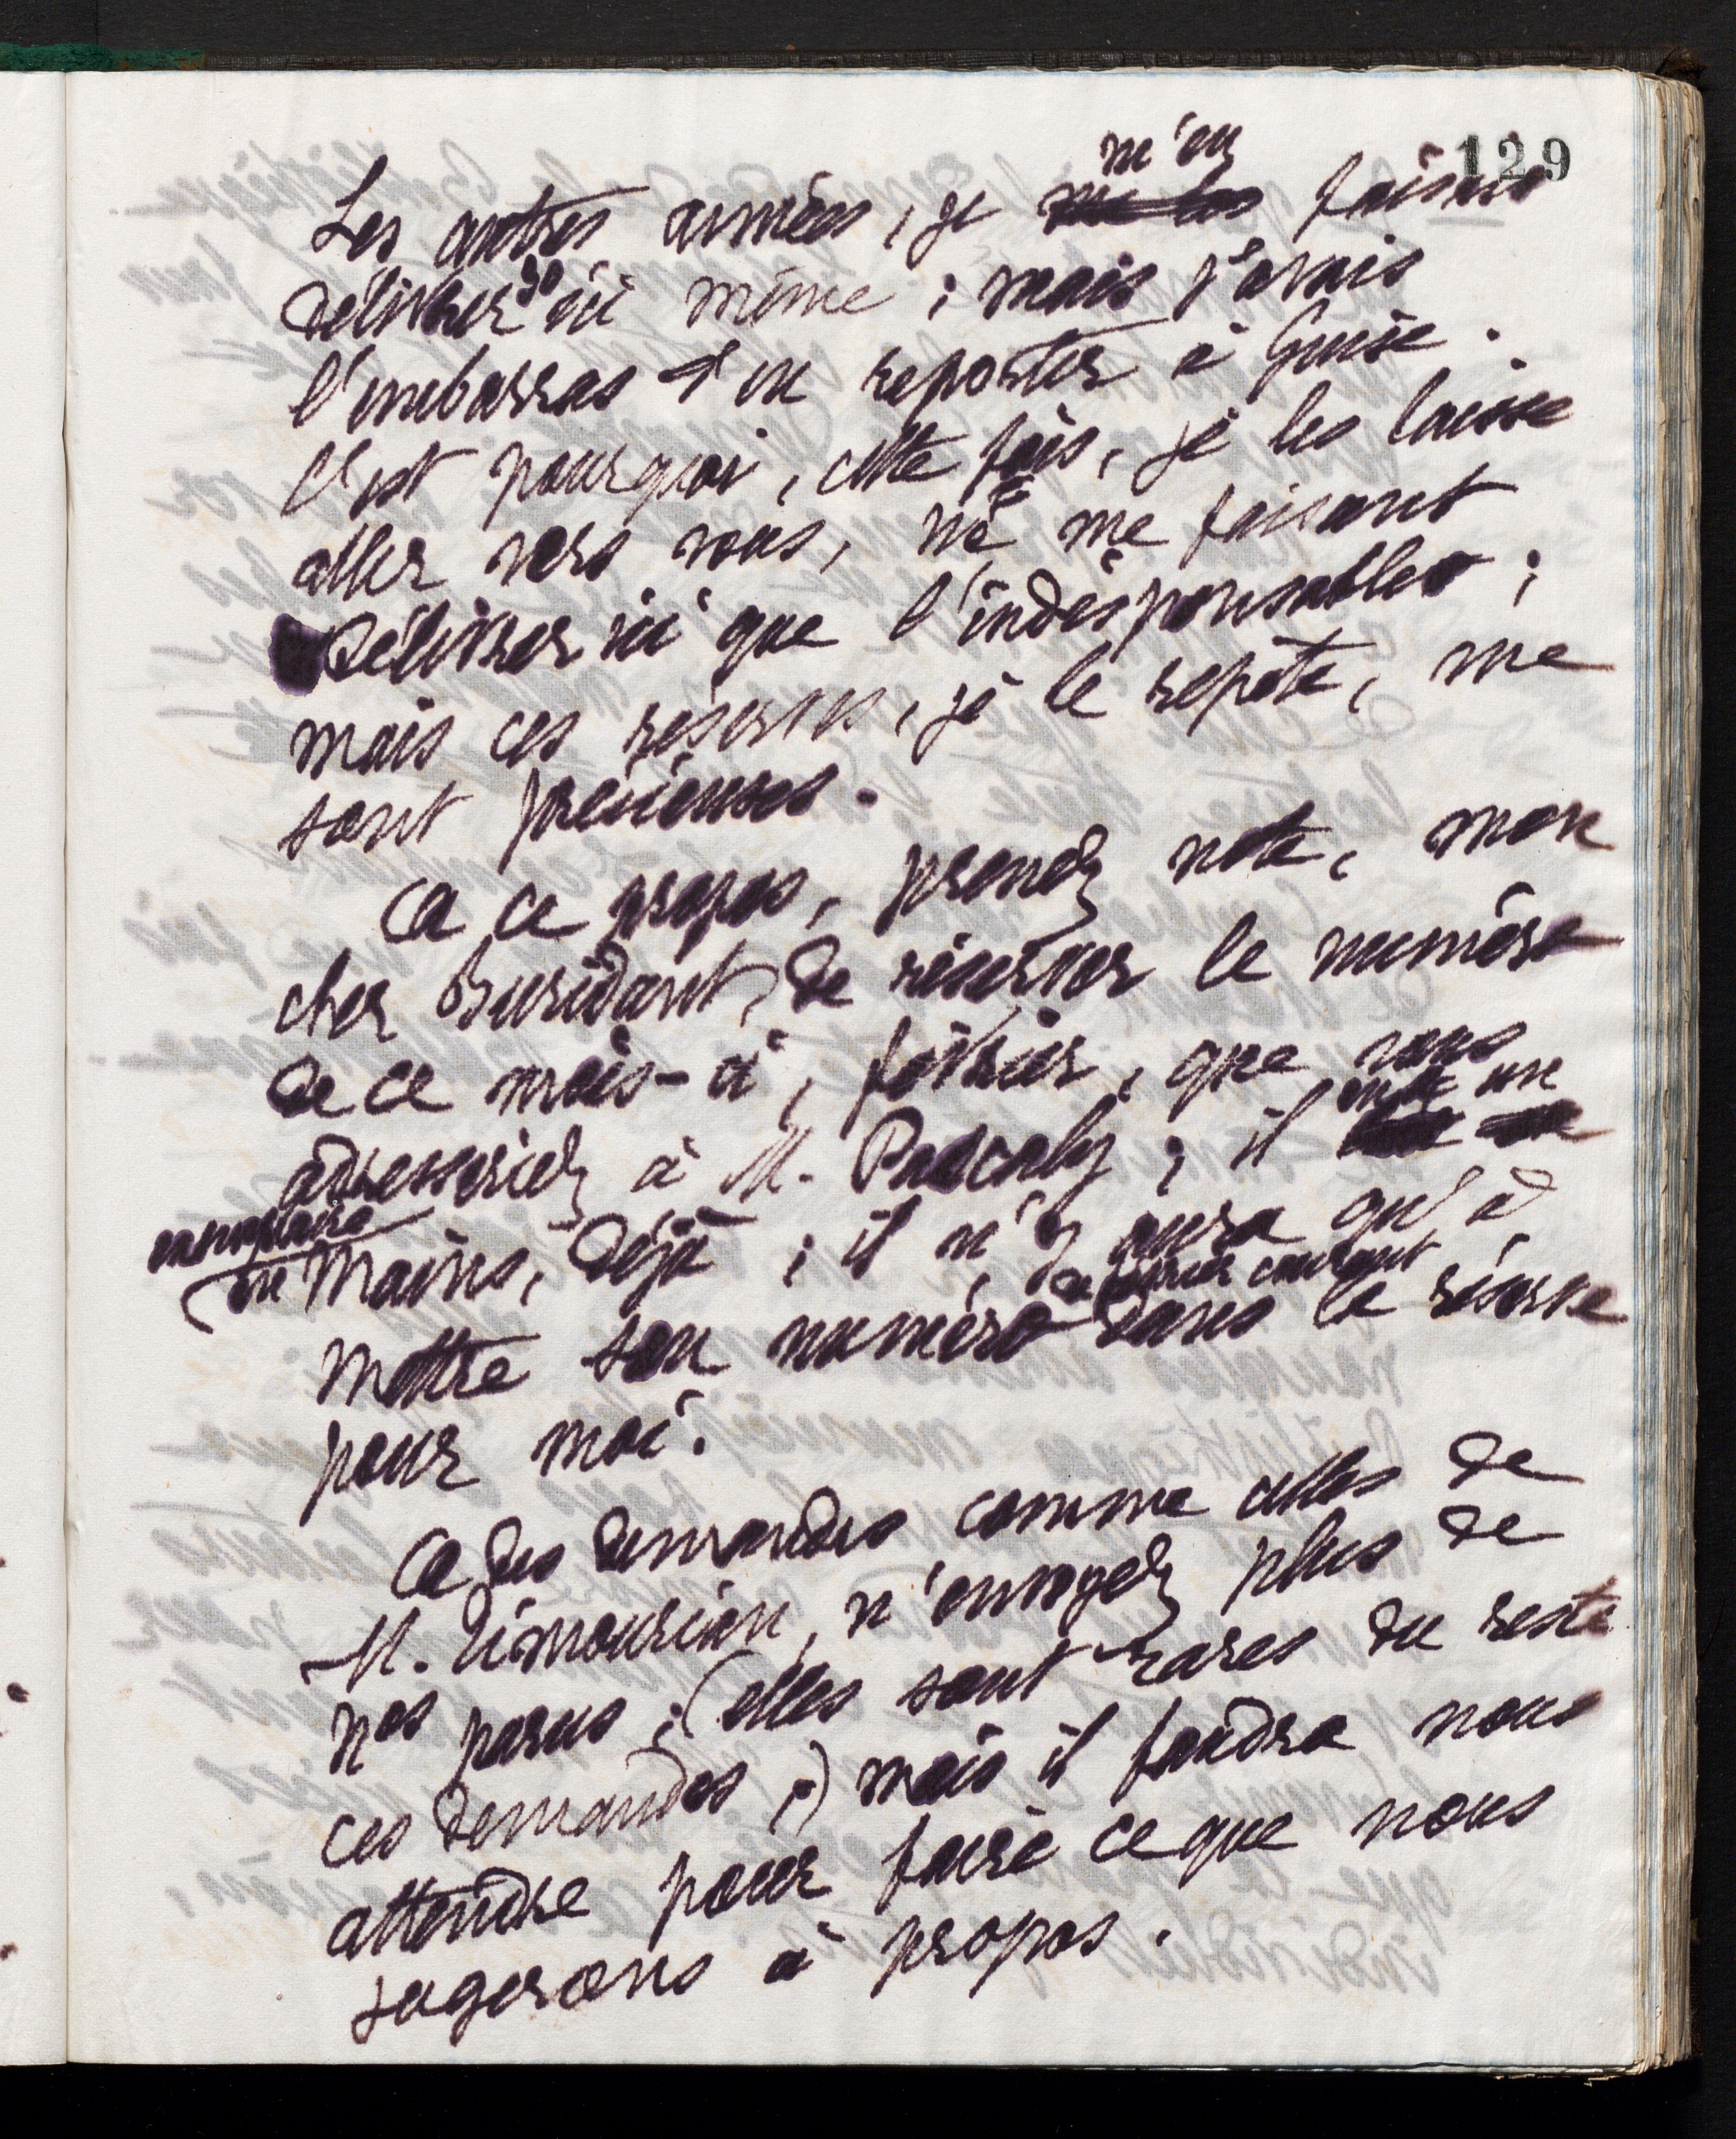 129
Les autres années, je m'en faisais
délivrer 30 ici même ; mais j'avais
l'embarras d'en reporter à Guise.
C'est pourquoi, cette fois, je les laisse
aller vers vous, ne me faisant
délivrer ici que l'indispensable ;
mais ces réserves, je le repète, me
sont précieuses.
A ce propos, prenez note, mon
cher Buridant, de réserver le numéro
de ce mois-ci, février, que vous
adresseriez à M. Pascaly ; il en a un
exemplaire
en mains, déjà ; il n'y aura qu'à
mettre son numéro de février courant dans la réserve
pour moi.
A des demandes comme celles de
M. Limousin, n'envoyez plus de
nos parus ; (elles sont rares du reste
ces demandes ;) mais il faudra nous
attendre pour faire ce que nous
jugerons à propos.